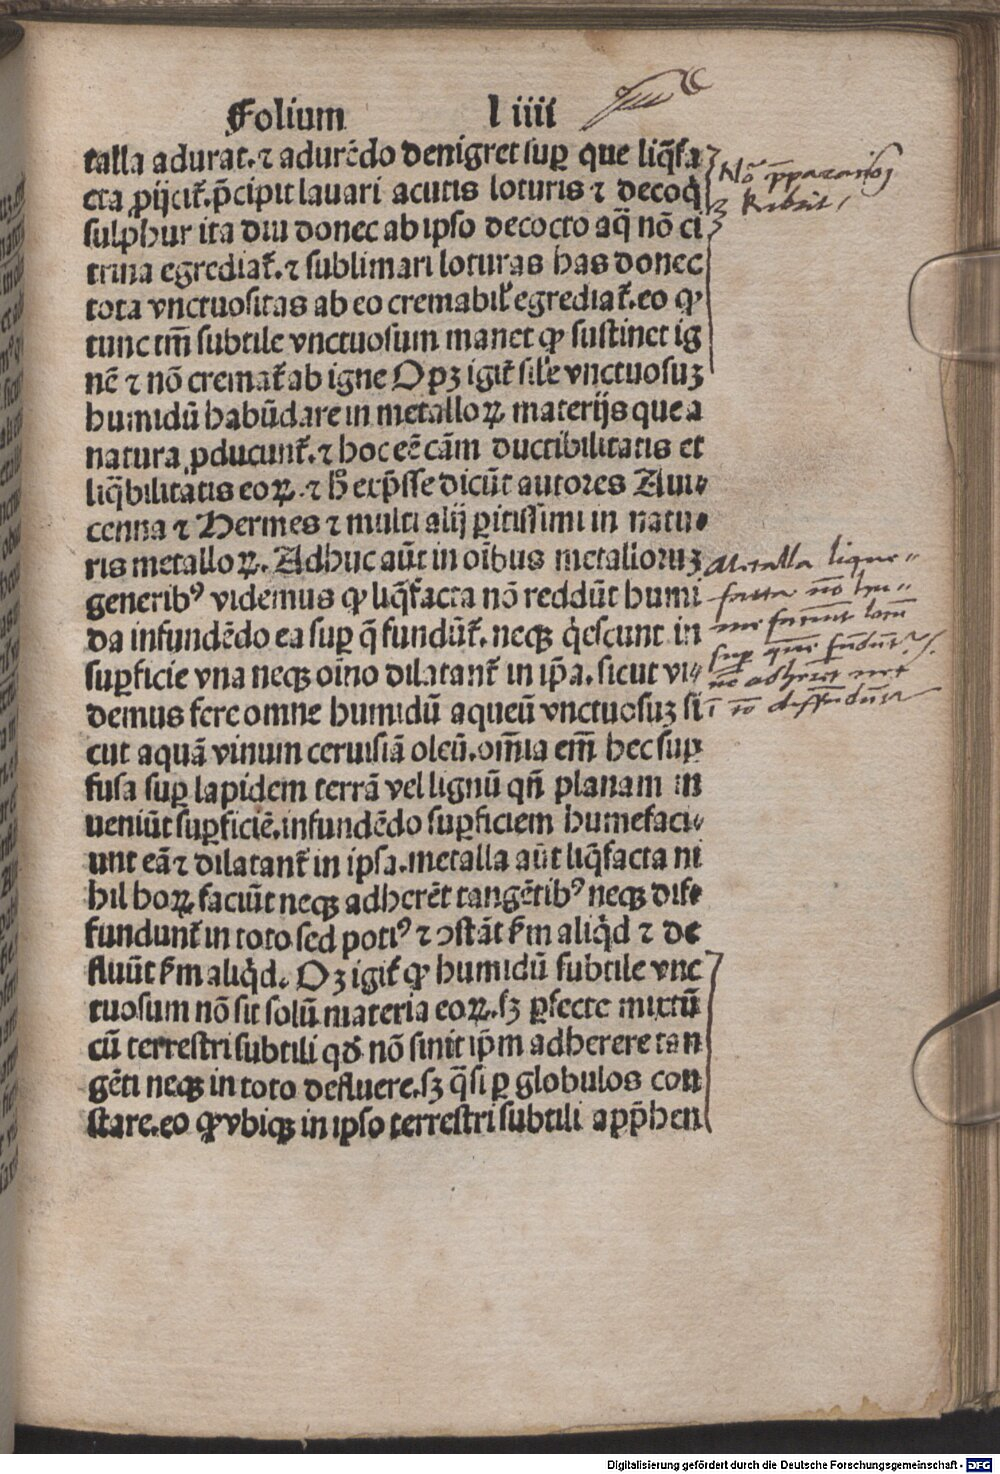 Folium l iiii
talla adurat.⁊ adurēdo denigret suꝑ que liq̄fa
cta ꝓijcit᷑.p̄cipit lauari acutis loturis ⁊ decoq̇
sulphur ita diu donec ab ipso decocto aq̄ nō ci
trina egrediat᷑.⁊ sublimari loturas has donec
tota vnctuositas ab eo cremabil᷑ egrediat᷑.eo ꝙ
tunc tm̄ subtile vnctuosum manet ꝙ sustinet ig
nē ⁊ nō cremat᷑ ab igne Opꝫ igit᷑ sil᷑e vnctuosuꝫ
humidū habūdare in metalloꝝ materijs que a
natura ꝓducunt᷑.⁊ hoc eē cām ductibilitatis et
liq̄bilitatis eoꝝ.⁊ h̄ exp̄sse dicūt autores Aui⸗
cenna ⁊ Hermes ⁊ multi alij ꝑitissimi in natu⸗
ris metalloꝝ. Adhuc aūt in oībus metalloruꝫ
generibꝰ videmus ꝙ liq̄facta nō reddūt humi
da infundēdo ea suꝑ q̄ fundūt᷑.neqꝫ q̇escunt in
suꝑficie vna neqꝫ oīno dilatant᷑ in ip̄a.sicut vi⸗
demus fere omne humidū aqueū vnctuosuꝫ si
cut aquā vinum ceruisiā oleū.om̄ia em̄ hec suꝑ
fusa suꝑ lapidem terrā vel lignū qn̄ planam in
ueniūt suꝑficiē.infundēdo suꝑficiem humefaci⸗
unt eā ⁊ dilatant᷑ in ipsa.metalla aūt liq̄facta ni
hil hoꝝ faciūt neqꝫ adherēt tangētibꝰ neqꝫ dif⸗
fundunt᷑ in toto sed potiꝰ ⁊ ↄstāt ẜm aliq̇d ⁊ de
fluūt ẜm aliq̇d. Oꝫ igit᷑ ꝙ humidū subtile vnc
tuosum nō sit solū materia eoꝝ.sꝫ ꝑfecte mixtū
cū terrestri subtili qđ nō sinit ip̄m adherere tan
gēti neqꝫ in toto defluere.sꝫ q̄si ꝑ globulos con
stare.eo ꝙ vbiqꝫ in ipso terrestri subtili app̄hen
Metalla lique⸗
facta nō hu⸗
Digitalisierung gefördert durch die Deutsche Forschungsgemeinschaft - DFG